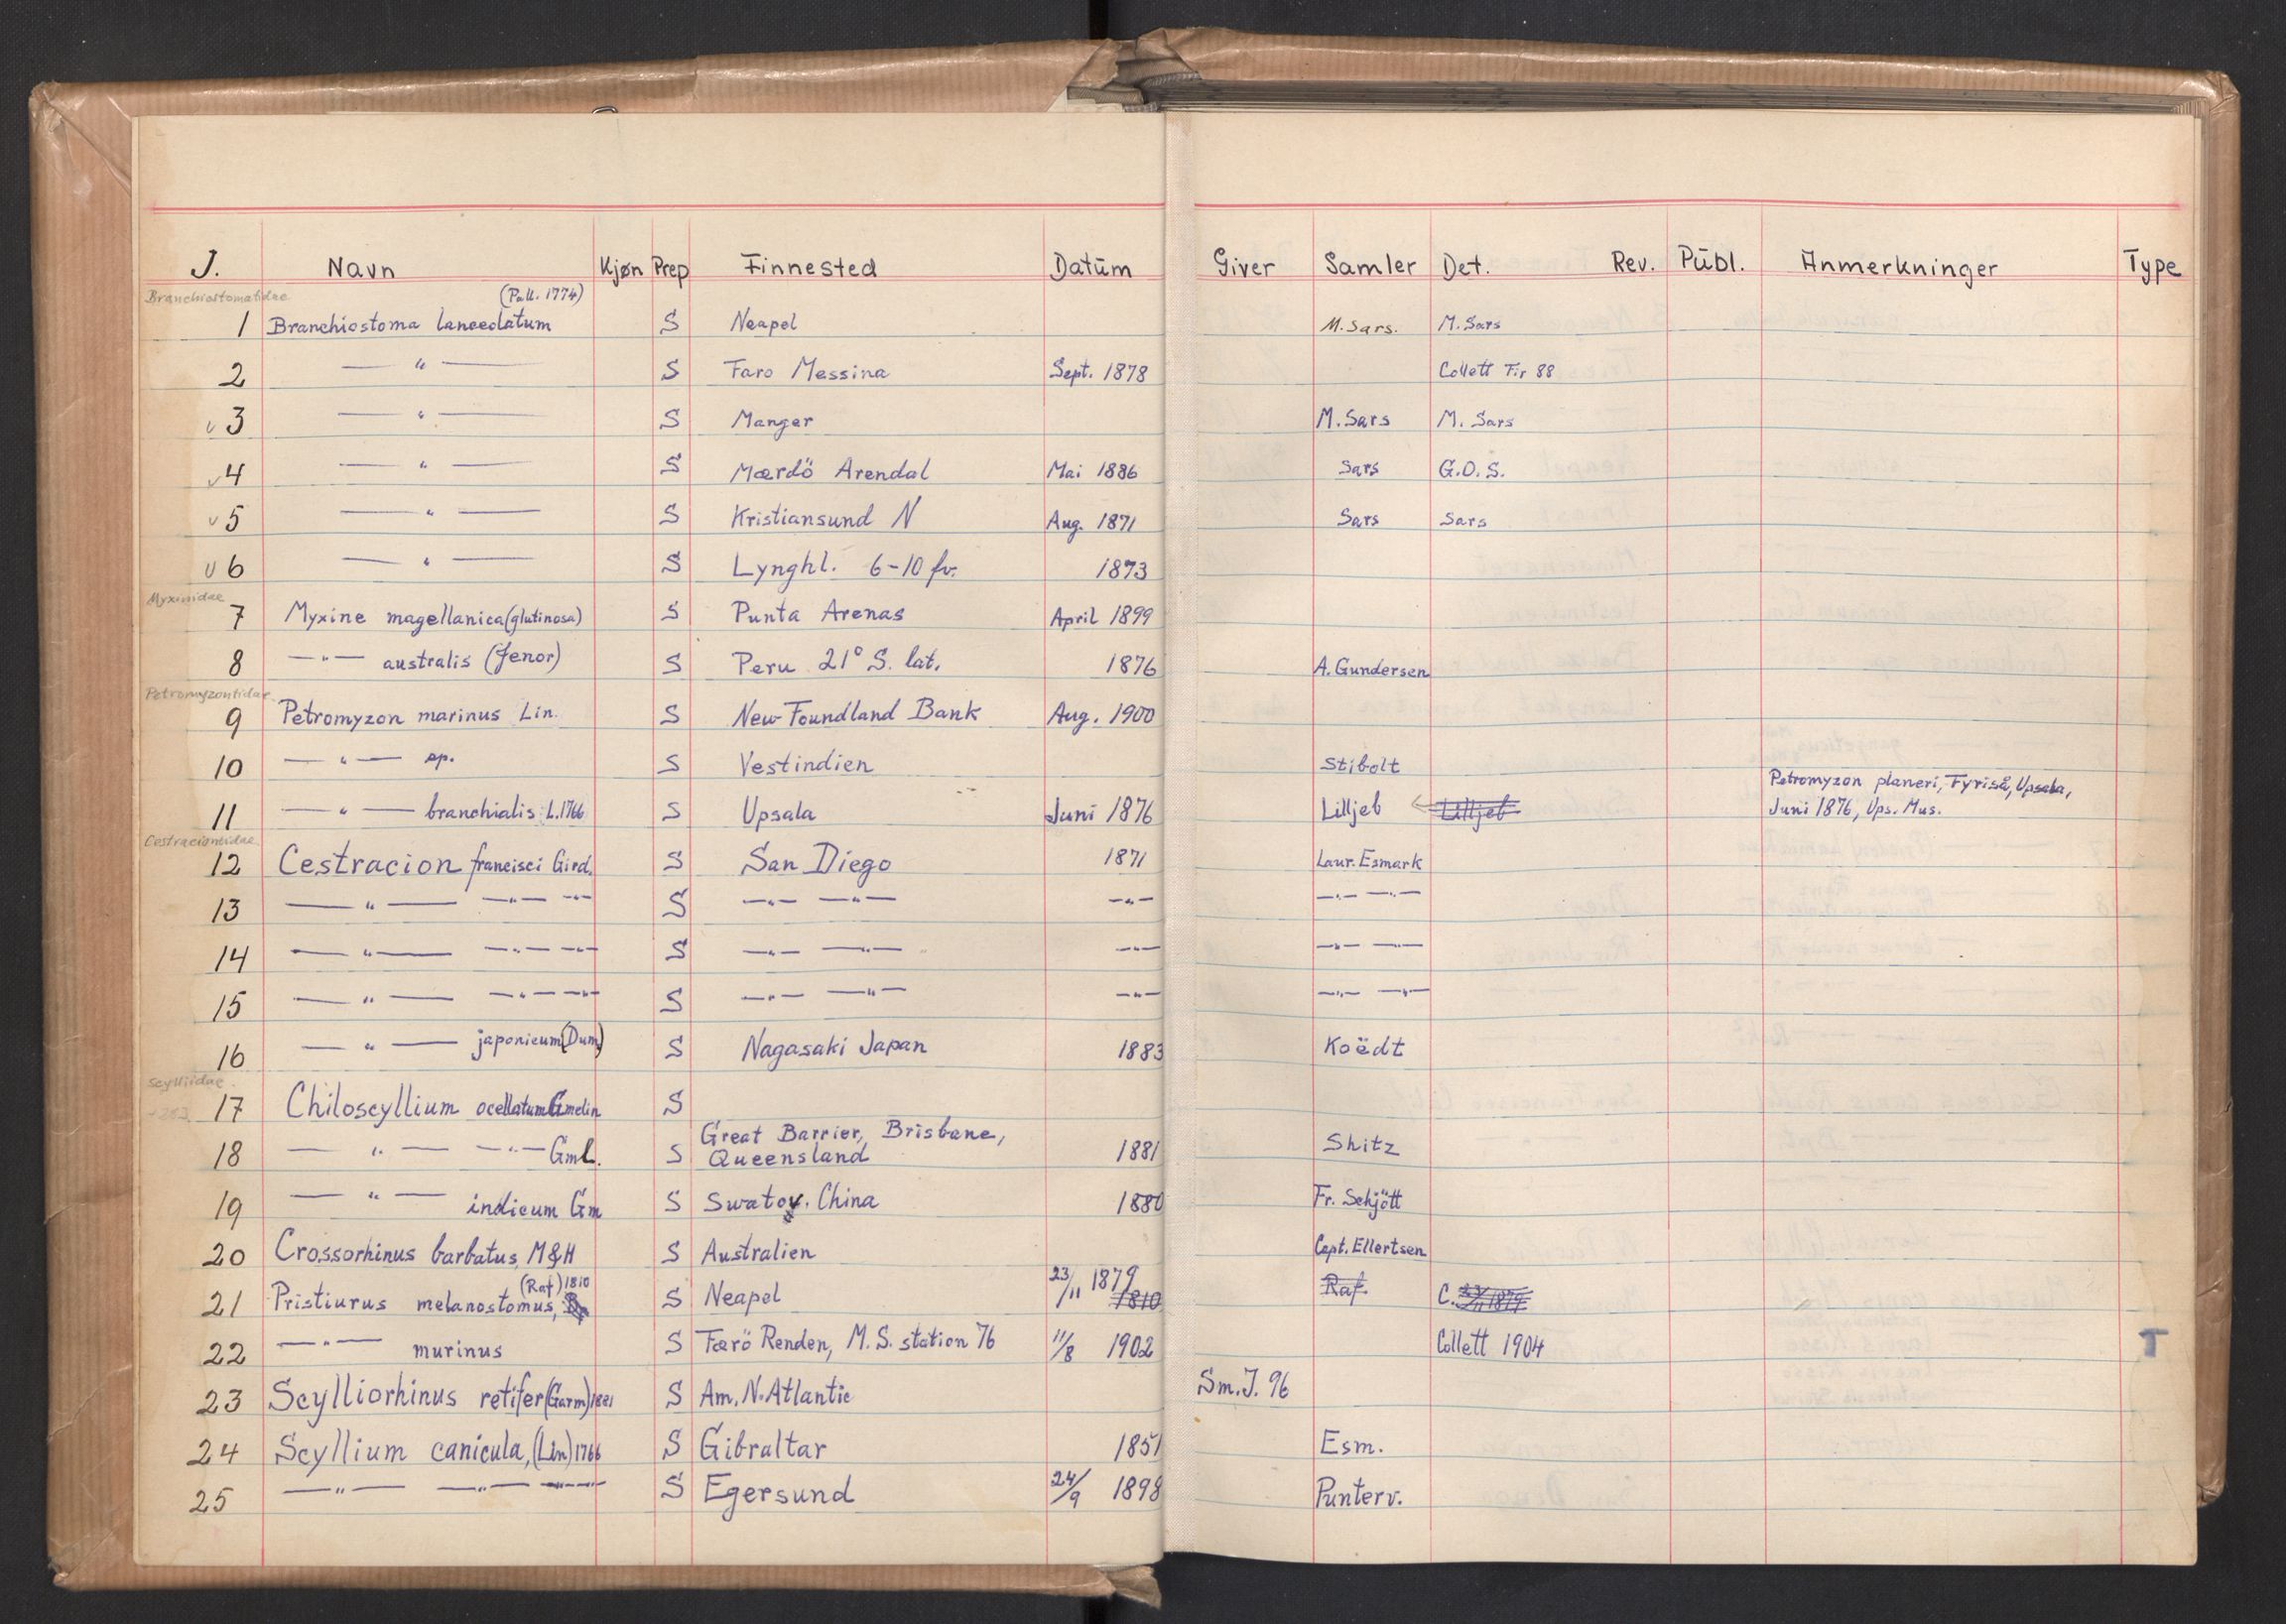 J. Navn Kjøn Prep Finnested Datum Giver Samler Det. Rev. Publ. Anmerkninger Type
Branchiostomatidae (Pall. 1774)
1 Branchiostoma lanceolatum S Neapel M. Sars. M. Sars
2 — " — S Faro Messina Sept. 1878 Collett Fir 88
v 3 — " — S Manger M. Sars M. Sars
v 4 — " — S Mærdö Arendal Mai 1886 Sars G.O.S.
v 5 — " — S Kristiansund N Aug. 1871 Sars Sars
v 6 — " — S Lynghl. 6-10 fv. 1873
Myxinidae
7 Myxine magellanica (glutinosa) S Punta Arenas April 1899
8 — " — australis (Jenor) S Peru 21° S. lat. 1876 A. Gundersen
Petromyzontidae
9 Petromyzon marinus Lin. S New Foundland Bank Aug. 1900
10 — " — sp. S Vestindien Stibolt
Petromyzon planeri, Fyriså, Upsala,
11 — " — branchialis L. 1766 S Upsala Juni 1876 Lilljeb Lilljeb Juni 1876, Ups. Mus.
Cestraciontidae
12 Cestracion francisci Gird. S San Diego 1871 Laur. Esmark
13 — " — — " — — " — S — " — — " — — " — — " — — " —
14 — " — — " — — " — S — " — — " — — " — — " — — " —
15 — " — — " — — " — S — " — — " — — " — — " — — " —
16 — " — japonicum (Dum) S Nagasaki Japan 1883 Koëdt
Scylliidae
17 Chiloscyllium ocellatum Gmelin S
Great Barrier, Brisbane,
18 — " — — " — Gml. S Queensland 1881 Shitz
19 — " — indicum Gm S Swatov. China 1880 Fr. Schjött
20 Crossorhinus barbatus, M & H S Australien Capt. Ellertsen
(Raf) 1810
21 Pristiurus melanostomus, S Neapel 23/11 1879 1810 Raf. C. 23/11 1879
22 — " — murinus S Færö Renden, M. S. station 76 11/8 1902 Collett 1904 T
23 Scylliorhinus retifer (Garm) 1881 S Am. N. Atlantic Sm. J. 96
24 Scyllium canicula, (Lin) 1766 S Gibraltar 1851 Esm.
25 — " — — " — — " — S Egersund 24/9 1898 Punterv.